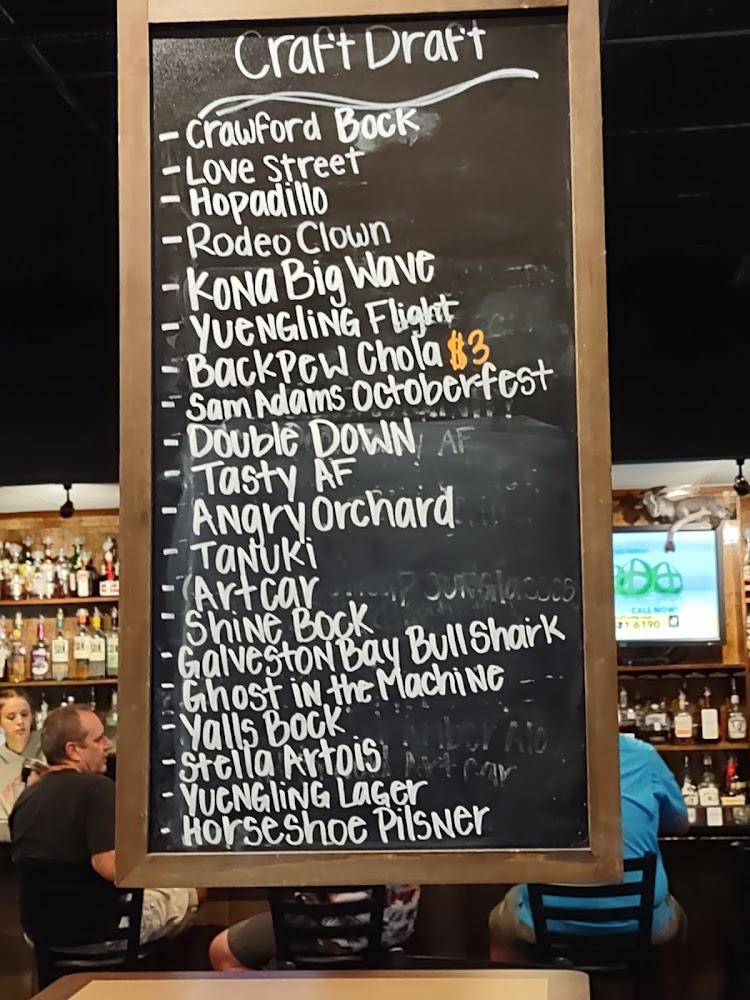 Craft Draft
- Crawford Bock
- Love Street
- Hopadillo
- Rodeo Clown
- Kona Big Wave
- Yuengling Flight
- Backpew Chola $3
- Sam Adams Octoberfest
- Double Down
AF
- Tasty AF
- Angry Orchard
- Tanuki
- Artcar
sunglasses
- Shine Bock
- Galveston Bay Bull Shark
- Ghost in the Machine
- Yalls Bock
- Stella Artois
Art car
- Yuengling Lager
- Horseshoe Pilsner
CALL NOW
1 6190